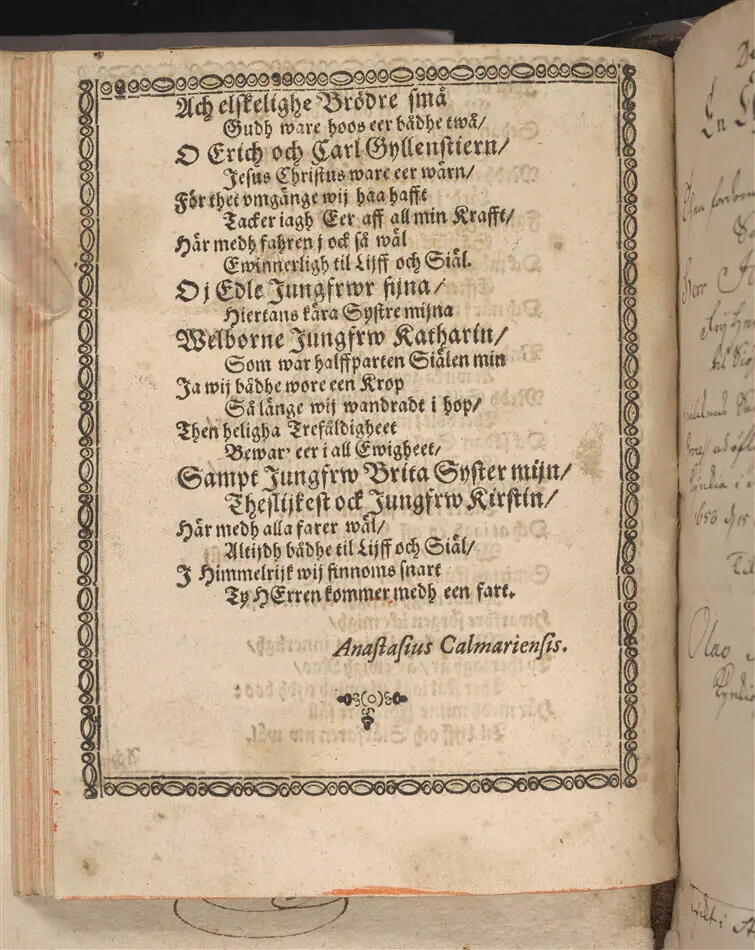 Ach elskelighe Brödre små
Gudh ware hoos eer bådhe twå/
O Erich och Carl Gyllenstiern/
Jesus Christus ware eer wärn/
För thet vmgänge wij haa hafft
Tacker iagh Eer aff all min Krafft/
Här medh fahren j ock så wäl
Ewinnerligh til Lijff och Siäl.
O j Edle Jungfrwr fijna/
Hiertans kära Systre mijna
Welborne Jungfrw Katharin/
Som war halffparten Siälen min
Ja wij bådhe wore een Krop
Så länge wij wandradt i hop/
Then heligha Trefäldigheet
Bewar' eer i all Ewigheet/
Sampt Jungfrw Brita Syster mijn/
Theslijkest ock Jungfrw Kirstin/
Här medh alla farer wäl/
Altijdh bådhe til Lijff och Siäl/
I Himmelrijk wij finnoms snart
Ty HErren kommer medh een fart.
Anastasius Calmariensis.
En
Herr
1658
Olao